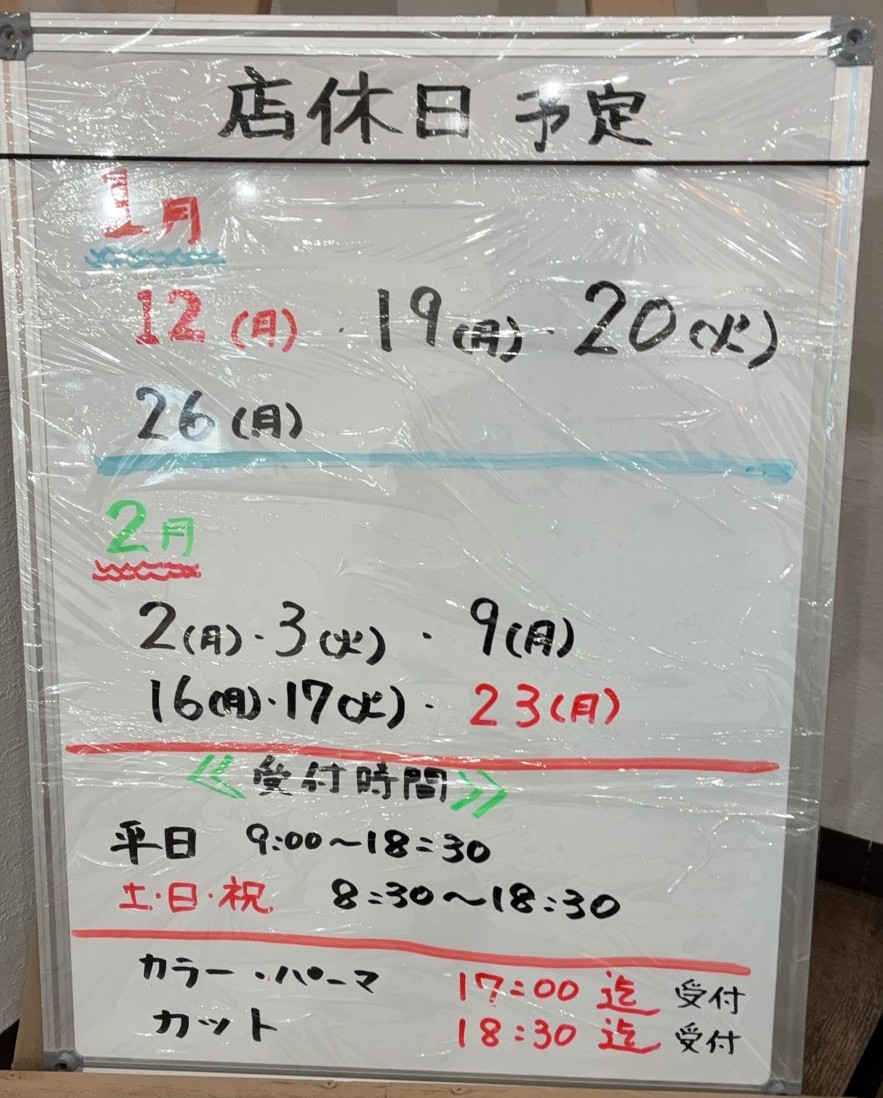 店休日 予定
1月
12(月)・19(月)・20(火)
26(月)
2月
2(月)・3(火)・9(月)
16(月)・17(火)・23(月)
《受付時間》
平日 9:00〜18:30
土・日・祝 8:30〜18:30
カラー・パーマ 17:00迄 受付
カット 18:30迄 受付